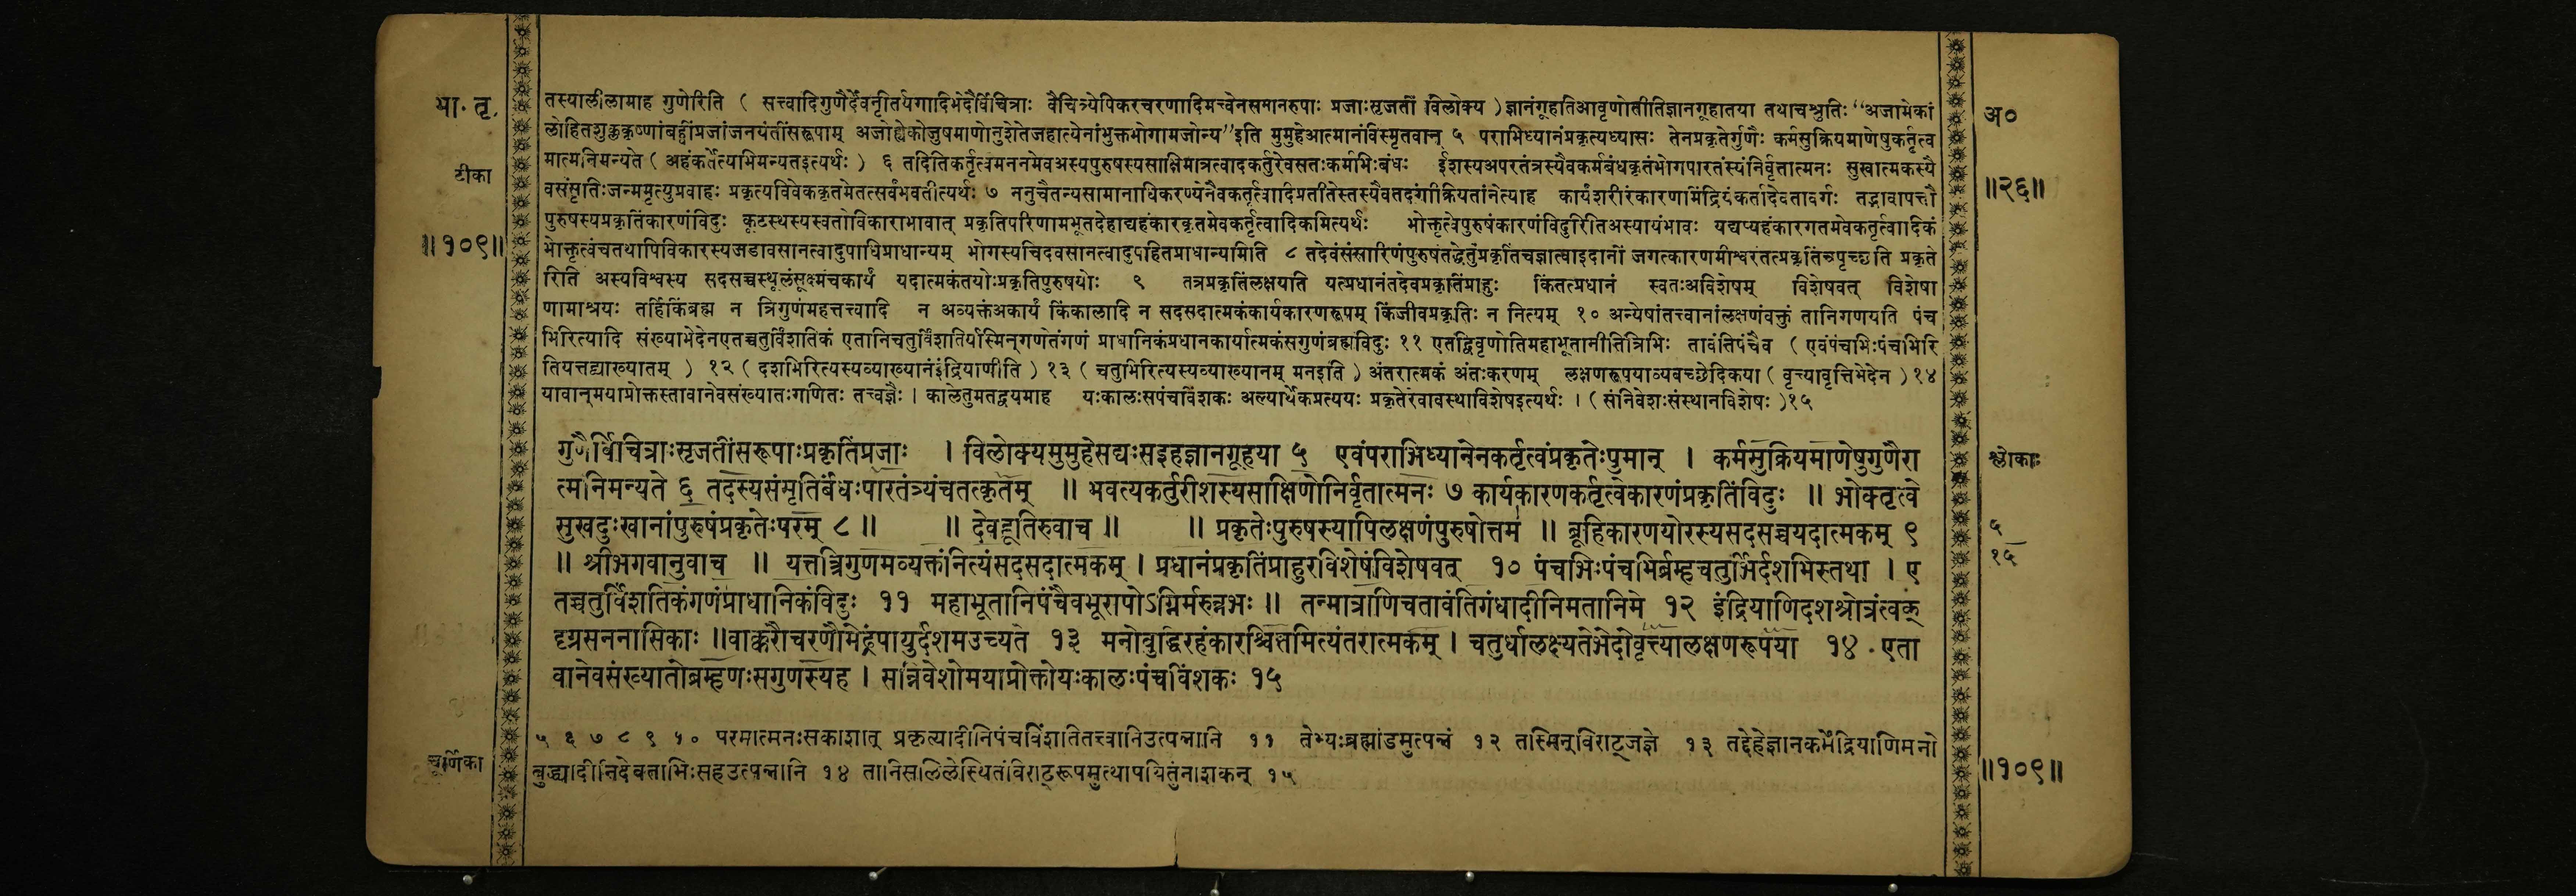 भा. तृ.
टीका
॥१०९॥
तस्यालीलामाह गुणेरिति ( सत्त्वादिगुणैर्देवनृतिर्यगादिभेदैर्विचित्राः वैचित्र्येपिकरचरणादिमत्त्वेनसमानरुपाः प्रजाःसृजतीं विलोक्य ) ज्ञानंगूहतिआवृणोतीतिज्ञानगूहातया तथाचश्रुतिः “अजामेकां
लोहितशुक्लकृष्णांबह्वींप्रजांजनयंतींसरूपाम् अजोह्येकोजुषमाणोनुशेतेजहात्येनांभुक्तभोगामजोन्य”इति मुमुहेआत्मानंविस्मृतवान् ५ पराभिध्यानंप्रकृत्यध्यासः तेनप्रकृतेर्गुणैः कर्मसुक्रियमाणेषुकर्तृत्व
मात्मनिमन्यते ( अहंकर्तेत्याभिमन्यतइत्यर्थः ) ६ तदितिकर्तृत्वमननमेवअस्यपुरुषस्यसाक्षिमात्रत्वादकर्तुरेवसतःकर्माभिःबंधः ईशस्यअपरतंत्रस्यैवकर्मबंधकृतंभोगपारतंत्र्यंनिर्वृतात्मनः सुखात्मकस्यै
वसंसृतिःजन्ममृत्युप्रवाहः प्रकृत्यविवेककृतमेतत्सर्वंभवतीत्यर्थः ७ ननुचैतन्यसामानाधिकरण्येनैवकर्तृत्वादिप्रतीतेस्तस्यैवतदंगीक्रियतांनेत्याह कार्यंशरीरंकारणमिंद्रियंकर्तादेवतावर्गः तद्भावापत्तौ
पुरुषस्यप्रकृतिंकारणंविदुः कूटस्थस्यस्वतोविकाराभावात् प्रकृतिपरिणामभूतदेहाद्यहंकारकृतमेवकर्तृत्वादिकमित्यर्थः भोक्तृत्वेपुरुषंकारणंविदुरितिअस्यायंभावः यद्यप्यहंकारगतमवेकर्तृत्वादिकं
भोक्तृत्वंचतथापिविकारस्यजडावसानत्वादुपाधिप्राधान्यम् भोगस्यचिदवसानत्वादुपहितप्राधान्यमिति ८ तदेवंसंसारिणंपुरुषंतद्धेतुंप्रकृतिंचज्ञात्वाइदानीं जगत्कारणमीश्वरंतत्प्रकृतिंचपृच्छति प्रकृते
रिति अस्यविश्वस्य सदसच्चस्थूलंसूक्ष्मंचकार्यं यदात्मकंतयोःप्रकृतिपुरुषयोः ९ तत्रप्रकृतिंलक्षयति यत्प्रधानंतदेवप्रकृतिंप्राहुः किंतत्प्रधानं स्वतःअविशेषम् विशेषवत् विशेषा
णामाश्रयः तर्हिकिंब्रह्म न त्रिगुणंमहत्तत्त्वादि न अव्यक्तंअकार्यं किंकालादि न सदसदात्मकंकार्यकारणरूपम् किंजीवप्रकृतिः न नित्यम् १० अन्येषांतत्त्वानांलक्षणंवक्तुं तानिगणयति पंच
भिरित्यादि संख्याभेदेनएतच्चतुर्विंशतिकं एतानिचतुर्विंशतिर्यस्मिन्गणेतंगणं प्राधानिकंप्रधानकार्यात्मकंसगुणंब्रह्मविदुः ११ एतद्विवृणोतिमहाभूतानीतित्रिभिः तावंतिपंचैव ( एवंपंचभिःपंचभिरि
तियत्तद्याख्यातम् ) १२ ( दशभिरित्यस्यव्याख्यानंइंद्रियाणीति ) १३ ( चतुभिरित्यस्यव्याख्यानम् मनइति ) अंतरात्मकं अंतःकरणम् लक्षणरूपयाव्यवच्छेदिकया ( वृत्त्यावृत्तिभेदेन ) १४
यावान्मयाप्रोक्तस्तावानेवसंख्यातःगणितः तत्त्वज्ञैः । कालेतुमतद्वयमाह यःकालःसपंचविंशकः अल्पार्थेकप्रत्ययः प्रकृतेरेवावस्थाविशेषइत्यर्थः । ( संनिवेशःसंस्थानविशेषः )१५
गुणैर्विचित्राःसृजतींसरूपाःप्रकृतिंप्रजाः । विलोक्यमुमुहेसद्यःसइहज्ञानगूहया ५ एवंपराभिध्यानेनकर्तृत्वंप्रकृतेःपुमान् । कर्मसुक्रियमाणेषुगुणैरा
त्मनिमन्यते ६ तदस्यसंसृतिर्बंधःपारतंत्र्यंचतत्कृतम् ॥ भवत्यकर्तुरीशस्यसाक्षिणोनिर्वृतात्मनः ७ कार्यकारणकर्तृत्वेकारणंप्रकृतिंविदुः ॥ भोक्तृत्वे
सुखदुःखानांपुरुषंप्रकृतेःपरम् ८ ॥ ॥ देवहूतिरुवाच ॥ ॥ प्रकृतेःपुरुषस्यापिलक्षणंपुरुषोत्तम ॥ ब्रूहिकारणयोरस्यसदसच्चयदात्मकम् ९
॥ श्रीभगवानुवाच ॥ यत्तत्रिगुणमव्यक्तंनित्यंसदसदात्मकम् । प्रधानंप्रकृतिंप्राहुरविशेषंविशेषवत् १० पंचभिःपंचभिर्ब्रम्हचतुर्भिर्दशभिस्तथा । ए
तच्चतुर्विंशतिकंगणंप्राधानिकंविदुः ११ महाभूतानिपंचैवभूरापोऽग्निर्मरुन्नभः ॥ तन्मात्राणिचतावंतिगंधादीनिमतानिमे १२ इंद्रियाणिदशश्रोत्रंत्वक्
दृग्रसननासिकाः ॥वाक्करौचरणौमेढ्रंपायुर्दशमउच्यते १३ मनोबुद्धिरहंकारश्चित्तमित्यंतरात्मकम् । चतुर्धालक्ष्यतेभेदोवृत्त्यालक्षणरूपया १४ . एता
वानेवसंख्यातोब्रम्हणःसगुणस्यह । सन्निवेशोमयाप्रोक्तोयःकालःपंचविंशकः १५
चूर्णिका
५ ६ ७ ८ ९ १० परमात्मनःसकाशात् प्रकृत्यादीनिपंचविंशतितत्त्वानिउत्पन्नानि ११ तेभ्यःब्रह्मांडमुत्पन्नं १२ तस्मिन्विराट्जज्ञे १३ तद्देहेज्ञानकर्मेंद्रियाणिमनो
बुद्ध्यादीनिदेवताभिःसहउत्पन्नानि १४ तानिसलिलेस्थितंविराट्रूपमुत्थापयितुंनाशकन् १५
अ०
॥२६॥
श्लोकाः
५
१५
॥१०९॥